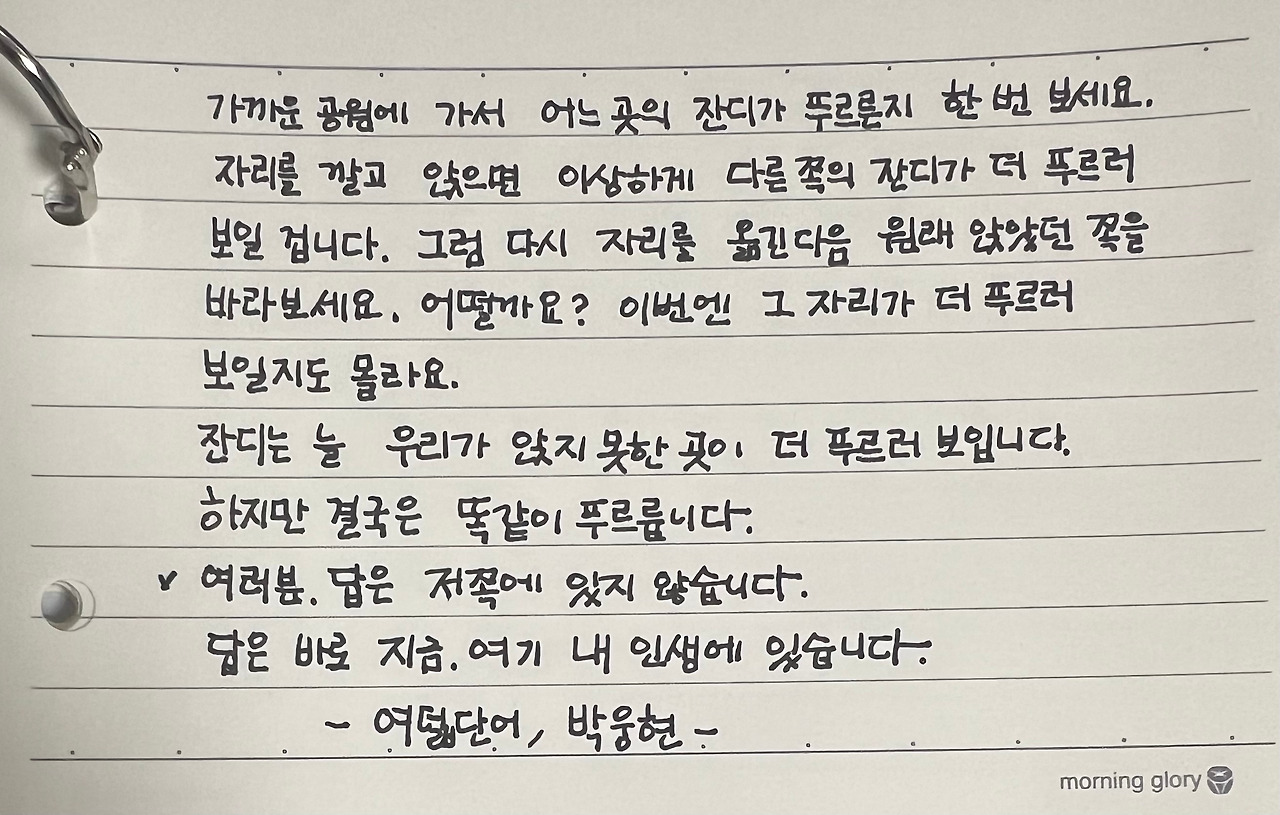 가까운 공원에 가서 어느 곳의 잔디가 푸르른지 한 번 보세요.
자리를 깔고 앉으면 이상하게 다른 쪽의 잔디가 더 푸르러
보일 겁니다. 그럼 다시 자리를 옮긴다음 원래 앉았던 쪽을
바라보세요. 어떨까요? 이번엔 그 자리가 더 푸르러
보일지도 몰라요.
잔디는 늘 우리가 앉지 못한 곳이 더 푸르러 보입니다.
하지만 결국은 똑같이 푸르릅니다.
v 여러분. 답은 저쪽에 있지 않습니다.
답은 바로 지금. 여기 내 인생에 있습니다.
- 여덟단어, 박웅현 -
morning glory